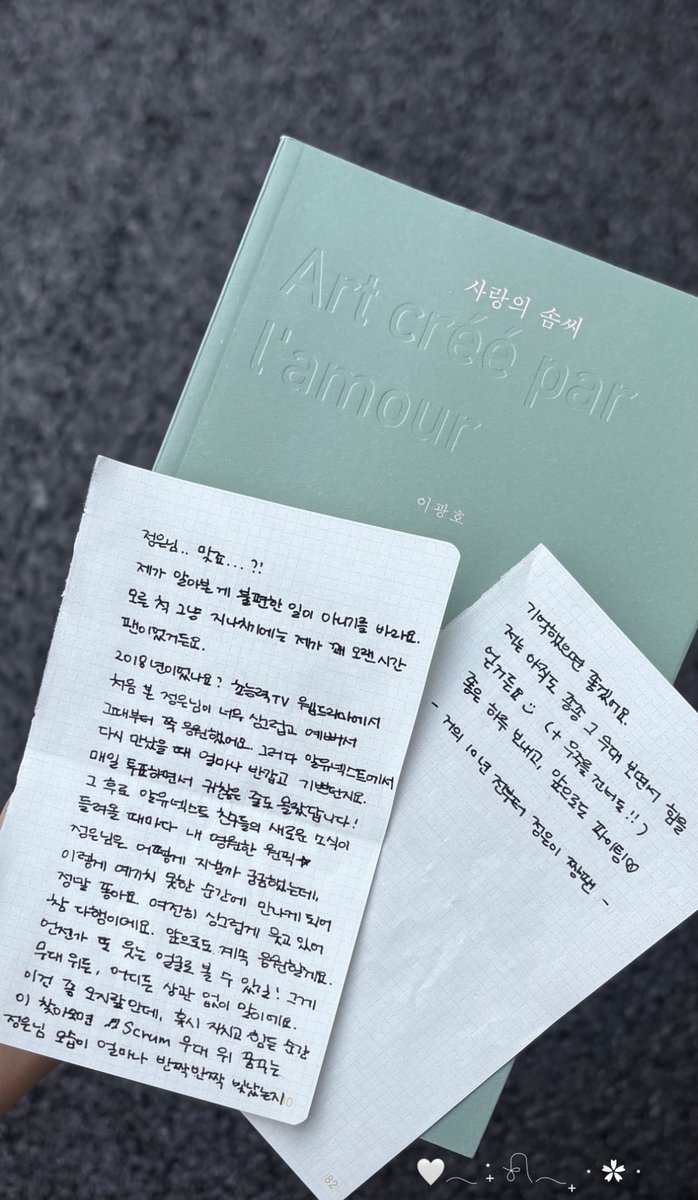 사랑의 솜씨
Art créé par
l'amour
이광호
정은님.. 맞죠...?!
제가 알아본 게 불편한 일이 아니기를 바라요.
모른 척 그냥 지나치기에는 제가 꽤 오랜 시간
팬이었거든요.
2018년이었나요? 초능력TV 웹드라마에서
처음 본 정은님이 너무 싱그럽고 예뻐서
그때부터 쭉 응원했어요. 그러다 알유넥스트에서
다시 만났을 때 얼마나 반갑고 기쁘던지요.
매일 투표하면서 귀찮은 줄도 몰랐답니다!
그 후로 알유넥스트 친구들의 새로운 소식이
들려올 때마다 내 영원한 원픽☆
정은님은 어떻게 지낼까 궁금했는데,
이렇게 예기치 못한 순간에 만나게 되어
정말 좋아요. 여전히 싱그럽게 웃고 있어
참 다행이에요. 앞으로도 계속 응원할게요.
언젠가 또 웃는 얼굴로 볼 수 있길! 그게
무대 위든, 어디든 상관 없이 말이에요.
이건 좀 오지랖인데, 혹시 지치고 힘든 순간
이 찾아오면 ♫ Scrum 무대 위 꿈꾸는
정은님 모습이 얼마나 반짝반짝 빛났는지
기억했으면 좋겠어요.
저는 아직도 종종 그 무대 보면서 힘을
얻거든요 (+ 우주를 건너도!!)
좋은 하루 보내고, 앞으로도 파이팅♡
- 거의 10년 전부터 정은이 짱팬 -
82